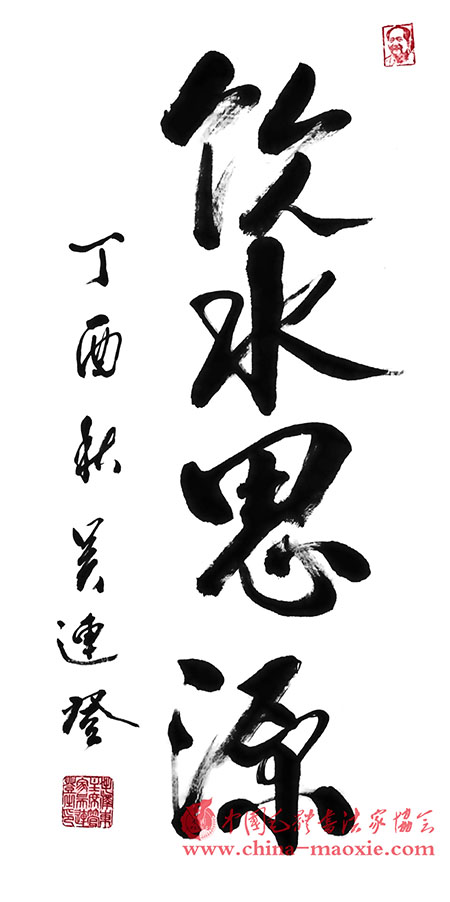 饮水思源
丁酉秋吴连登
中国毛体书法家协会
www.china-maoxie.com